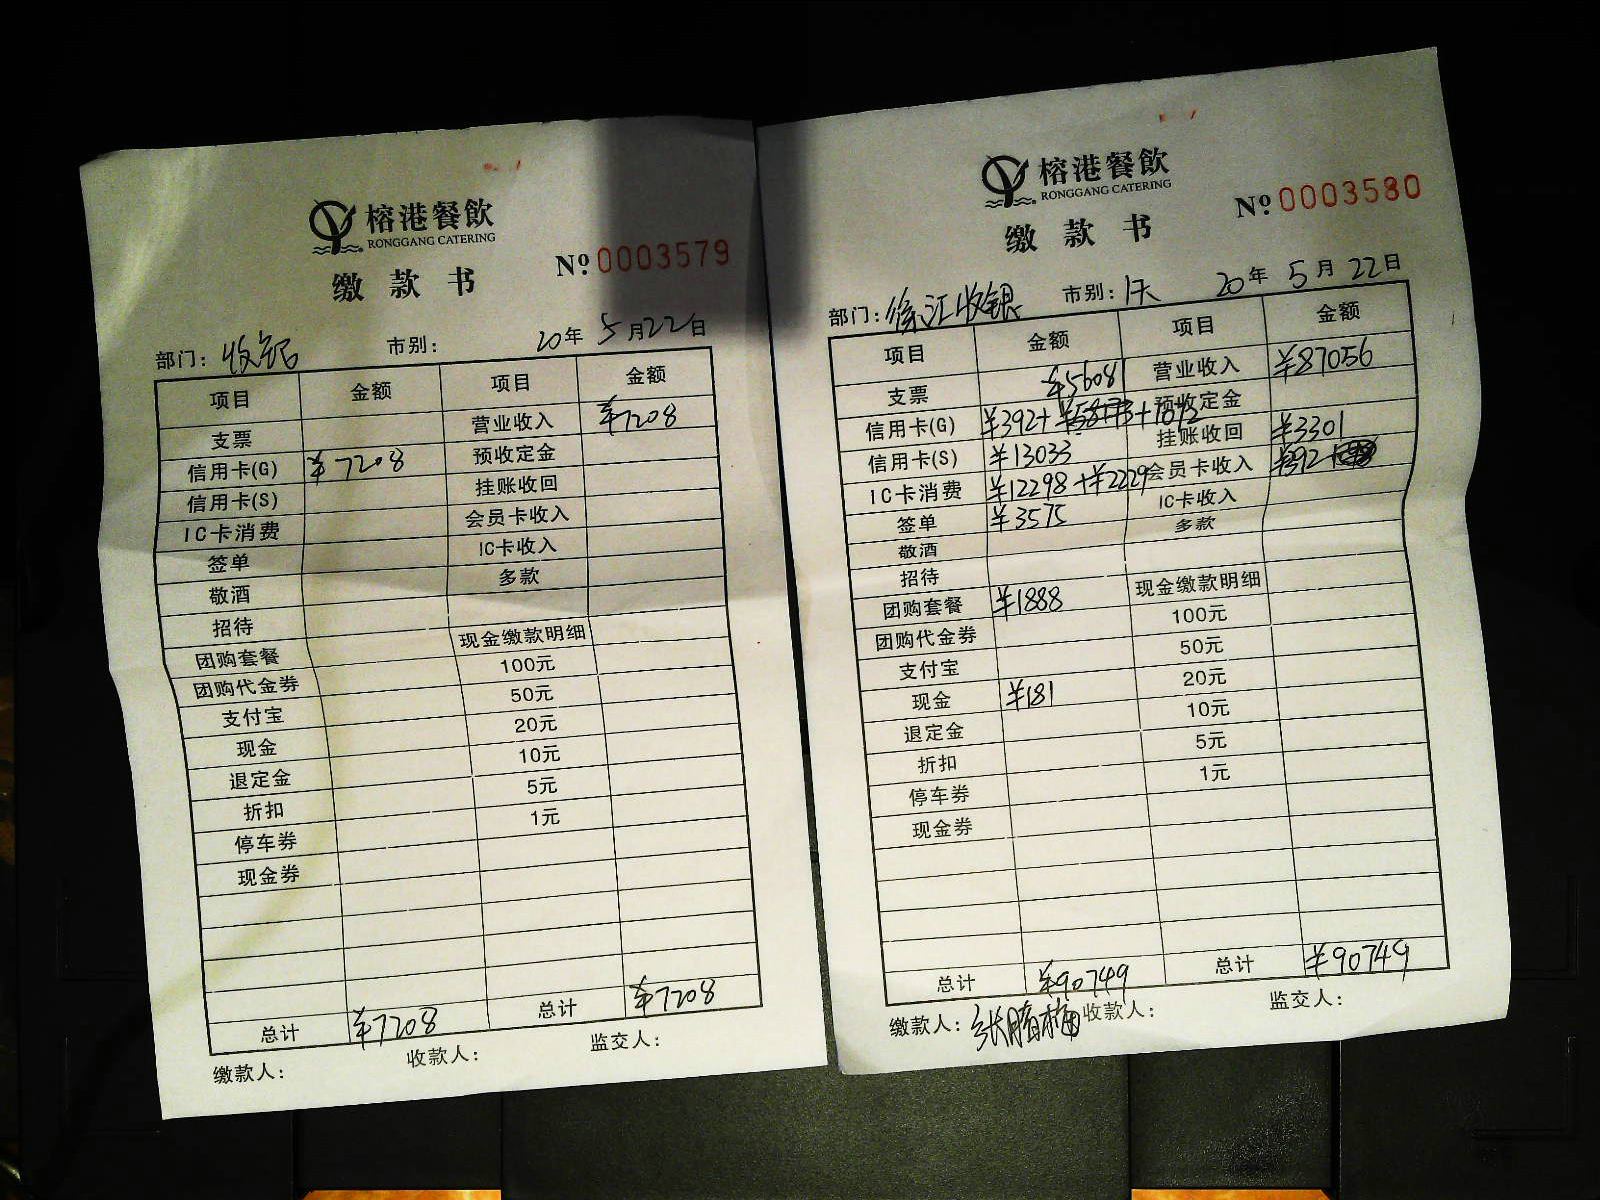 榕港餐飲
RONGGANG CATERING
缴款书
Nº 0003579
部门: 收银 市别: 20年 5月22日
项目 金额 项目 金额
支票 营业收入 ¥7208
信用卡(G) ¥7208 预收定金
信用卡(S) 挂账收回
IC卡消费 会员卡收入
签单 IC卡收入
敬酒 多款
招待
团购套餐 现金缴款明细
团购代金券 100元
支付宝 50元
现金 20元
退定金 10元
折扣 5元
停车券 1元
现金券
总计 ¥7208 总计 ¥7208
缴款人: 收款人: 监交人:
榕港餐飲
RONGGANG CATERING
缴款书
Nº 0003580
部门: 徐汇收银 市别: 1天 20年 5月22日
项目 金额 项目 金额
支票 营业收入 ¥87056
¥56081
信用卡(G) ¥392+ 预收定金
信用卡(S) ¥13033 挂账收回 ¥3301
IC卡消费 ¥12298+¥2229 会员卡收入 ¥392
签单 ¥3575 IC卡收入
敬酒 多款
招待
团购套餐 ¥1888 现金缴款明细
团购代金券 100元
支付宝 50元
现金 ¥181 20元
退定金 10元
折扣 5元
停车券 1元
现金券
总计 ¥90749 总计 ¥90749
缴款人: 张 梅 收款人: 监交人: